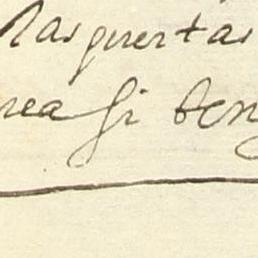 las puertas
rea si ten